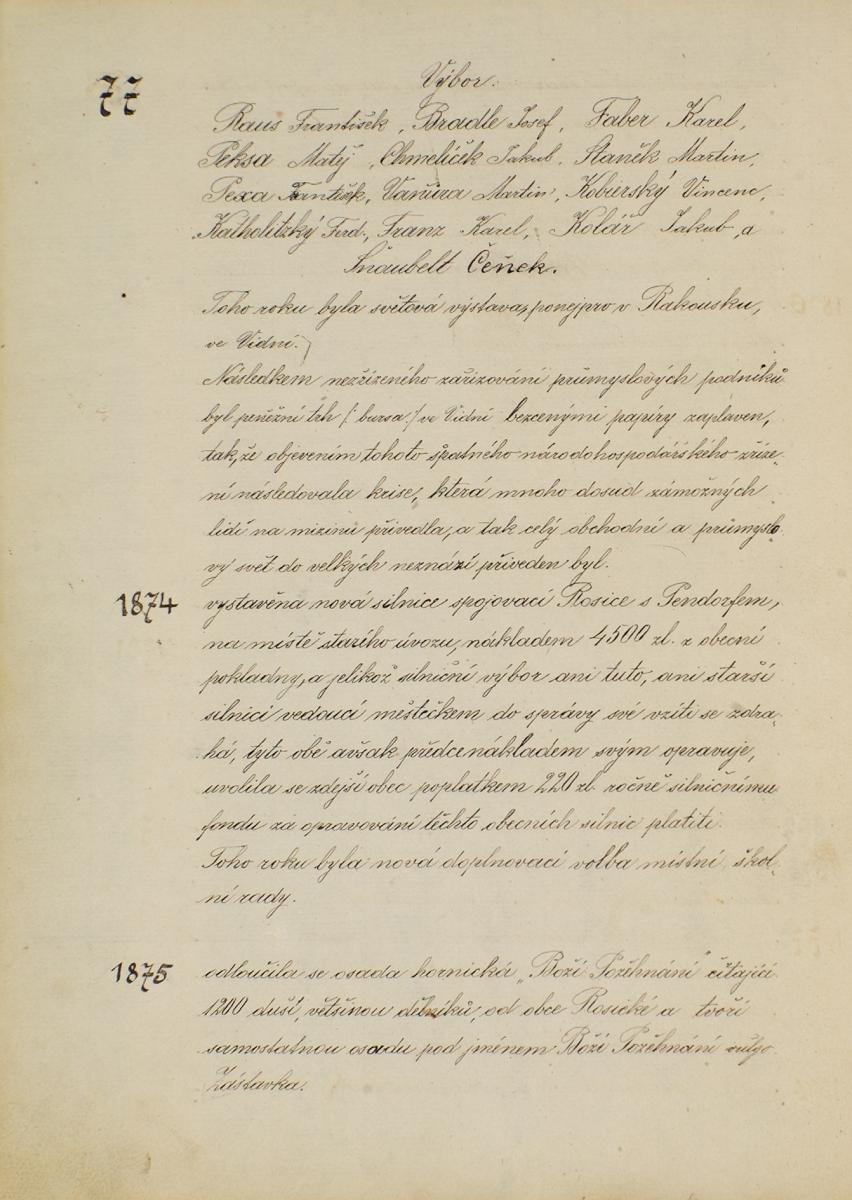 77
Výbor:
Raus František, Bradle Josef, Faber Karel,
Peksa Matěj, Chmelíček Jakub, Staněk Martin,
Pexa František, Vaňura Martin, Kobierský Vincenc,
Katholitzký Ferd., Franz Karel, Kolář Jakub, a
Šnaubelt Čeněk.
Toho roku byla světová výstava, ponejprv v Rakousku,
ve Vídni.
Následkem nezřízeného zařizování průmyslových podniků
byl peněžní trh /: bursa :/ ve Vídni bezcenými papíry zaplaven,
tak, že objevením tohoto špatného národohospodářského zříze-
ní následovala krise, která mnoho dosud zámožných
lidí na mizinu přivedla, a tak celý obchodní a průmyslo-
vý svět do velkých neznází přiveden byl.
1874 vystavěna nová silnice spojovací Rosice s Tendorfem,
na místě starího úvozu, nákladem 4500 zl. z obecní
pokladny, a jelikož silniční výbor ani tuto, ani starší
silnici vedoucí městečkem do správy své vzíti se zdrá-
há, tyto obě avšak předce nákladem svým opravuje,
uvolila se zdejší obec poplatkem 220 zl. ročně silničnímu
fondu za opravování těchto obecních silnic platiti.
Toho roku byla nová doplnovací volba místní škol-
ní rady.
1875 odloučila se osada hornická „Boží Požehnání" čítající
1200 duší, většinou dělníků, od obce Rosické a tvoří
samostatnou osadu pod jménem Boží Požehnání vulgo
Zástavka.